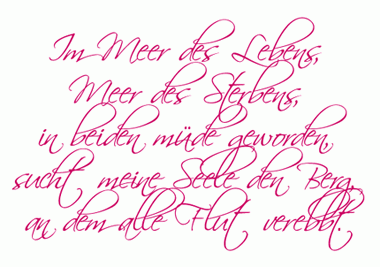 Im Meer des Lebens,
Meer des Sterbens,
in beiden müde geworden,
sucht meine Seele den Berg,
an dem alle Flut verebbt.